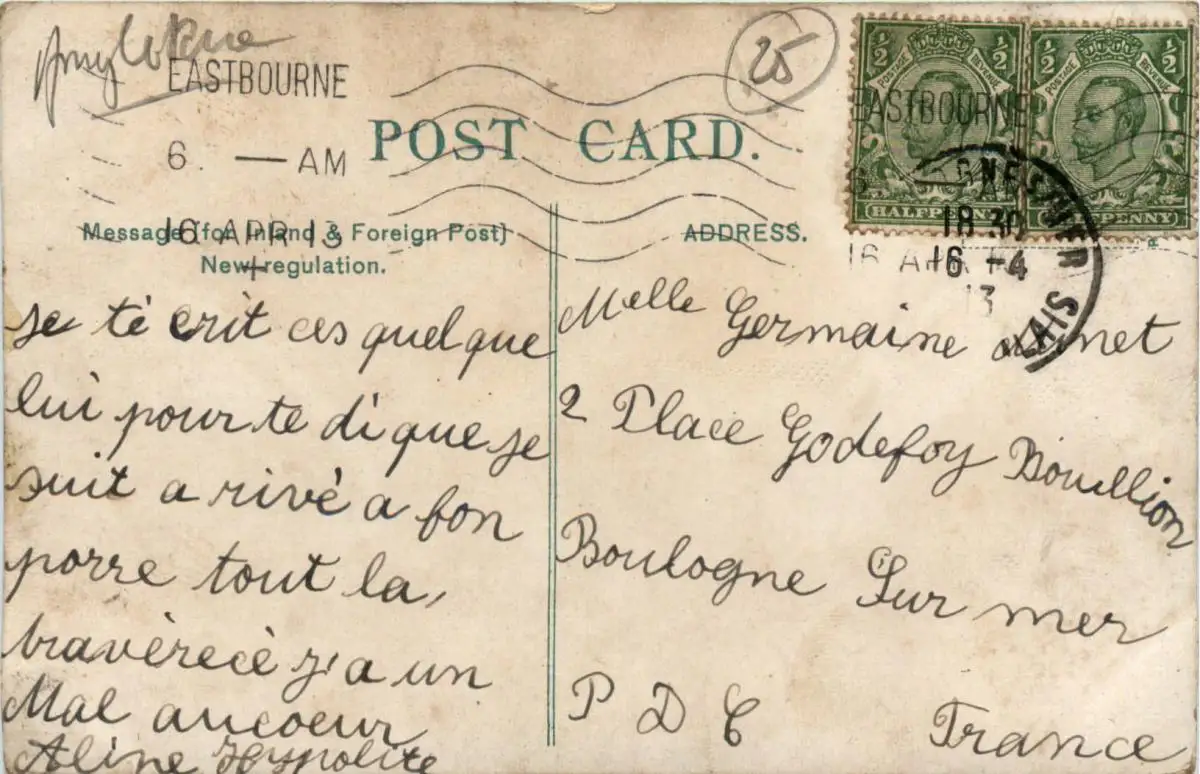 EASTBOURNE
6. — AM
16 APR 13
+
POST CARD.
25
½ ½
POSTAGE REVENUE
EASTBOURNE
HALFPENNY
½ ½
POSTAGE REVENUE
PENNY
18 30
16 -4
13
16 AP
Message (for Inland & Foreign Post)
New regulation.
ADDRESS.
Je té crit ces quelque
lui pour te di que je
suit a rivé a bon
porre tout la,
travèrecè j'a un
Mal aucoeur
Aline Hypolite
Melle Germaine
2 Place Godefoy Bouillion
Boulogne Sur mer
P D C France